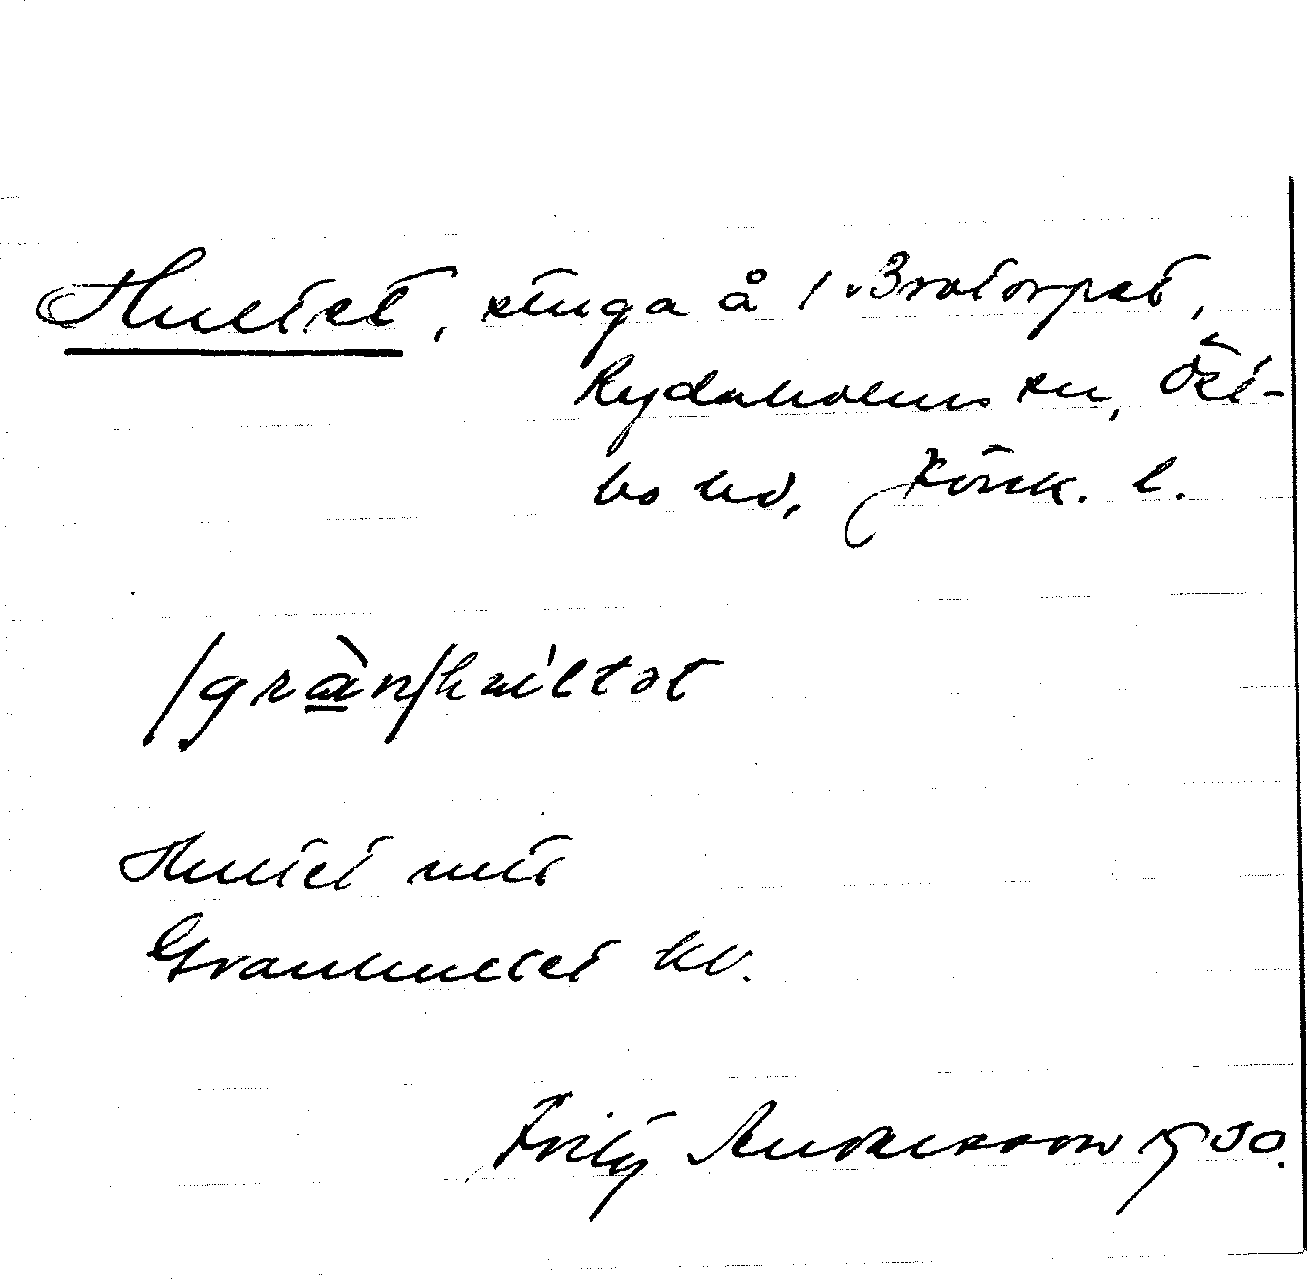 Hultet, stuga å /. Brotorpet,
Rydaholms sn, Öst-
bo hd, Jönk. l.
/gràn/hul`tət
Hultet
Granhultet
Fritz Andersson 1930.